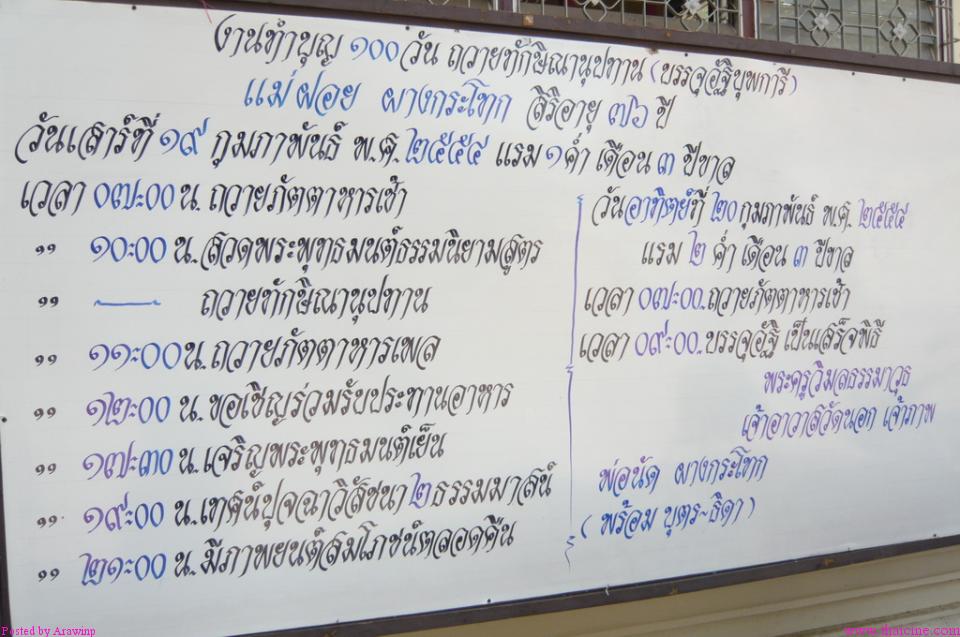 งานทำบุญ ๑๐๐ วัน ถวายทักษิณานุปทาน (บรรจุอัฐิบุพการี)
แม่ฝอย ผางกระโทก สิริอายุ ๗๖ ปี
วันเสาร์ที่ ๑๙ กุมภาพันธ์ พ.ศ. ๒๕๕๔ แรม ๑ ค่ำ เดือน ๓ ปีขาล
เวลา ๐๗:๐๐ น. ถวายภัตตาหารเช้า
,, ๑๐:๐๐ น. สวดพระพุทธมนต์ธรรมนิยามสูตร
,, — ถวายทักษิณานุปทาน
,, ๑๑:๐๐ น. ถวายภัตตาหารเพล
,, ๑๒:๐๐ น. ขอเชิญร่วมรับประทานอาหาร
,, ๑๗:๓๐ น. เจริญพระพุทธมนต์เย็น
,, ๑๙:๐๐ น. เทศน์ปุจฉาวิสัชนา ๒ ธรรมมาสน์
,, ๒๑:๐๐ น. มีภาพยนต์สมโภชน์ตลอดคืน
วันอาทิตย์ที่ ๒๐ กุมภาพันธ์ พ.ศ. ๒๕๕๔
แรม ๒ ค่ำ เดือน ๓ ปีขาล
เวลา ๐๗:๐๐. ถวายภัตตาหารเช้า
เวลา ๐๙:๐๐. บรรจุอัฐิ เป็นเสร็จพิธี
พระครูวิมลธรรมาวุธ
เจ้าอาวาสวัดนอก เจ้าภาพ
พ่อนัด ผางกระโทก
(พร้อม บุตร-ธิดา)
Posted by Arawinp
www.thaicine.com